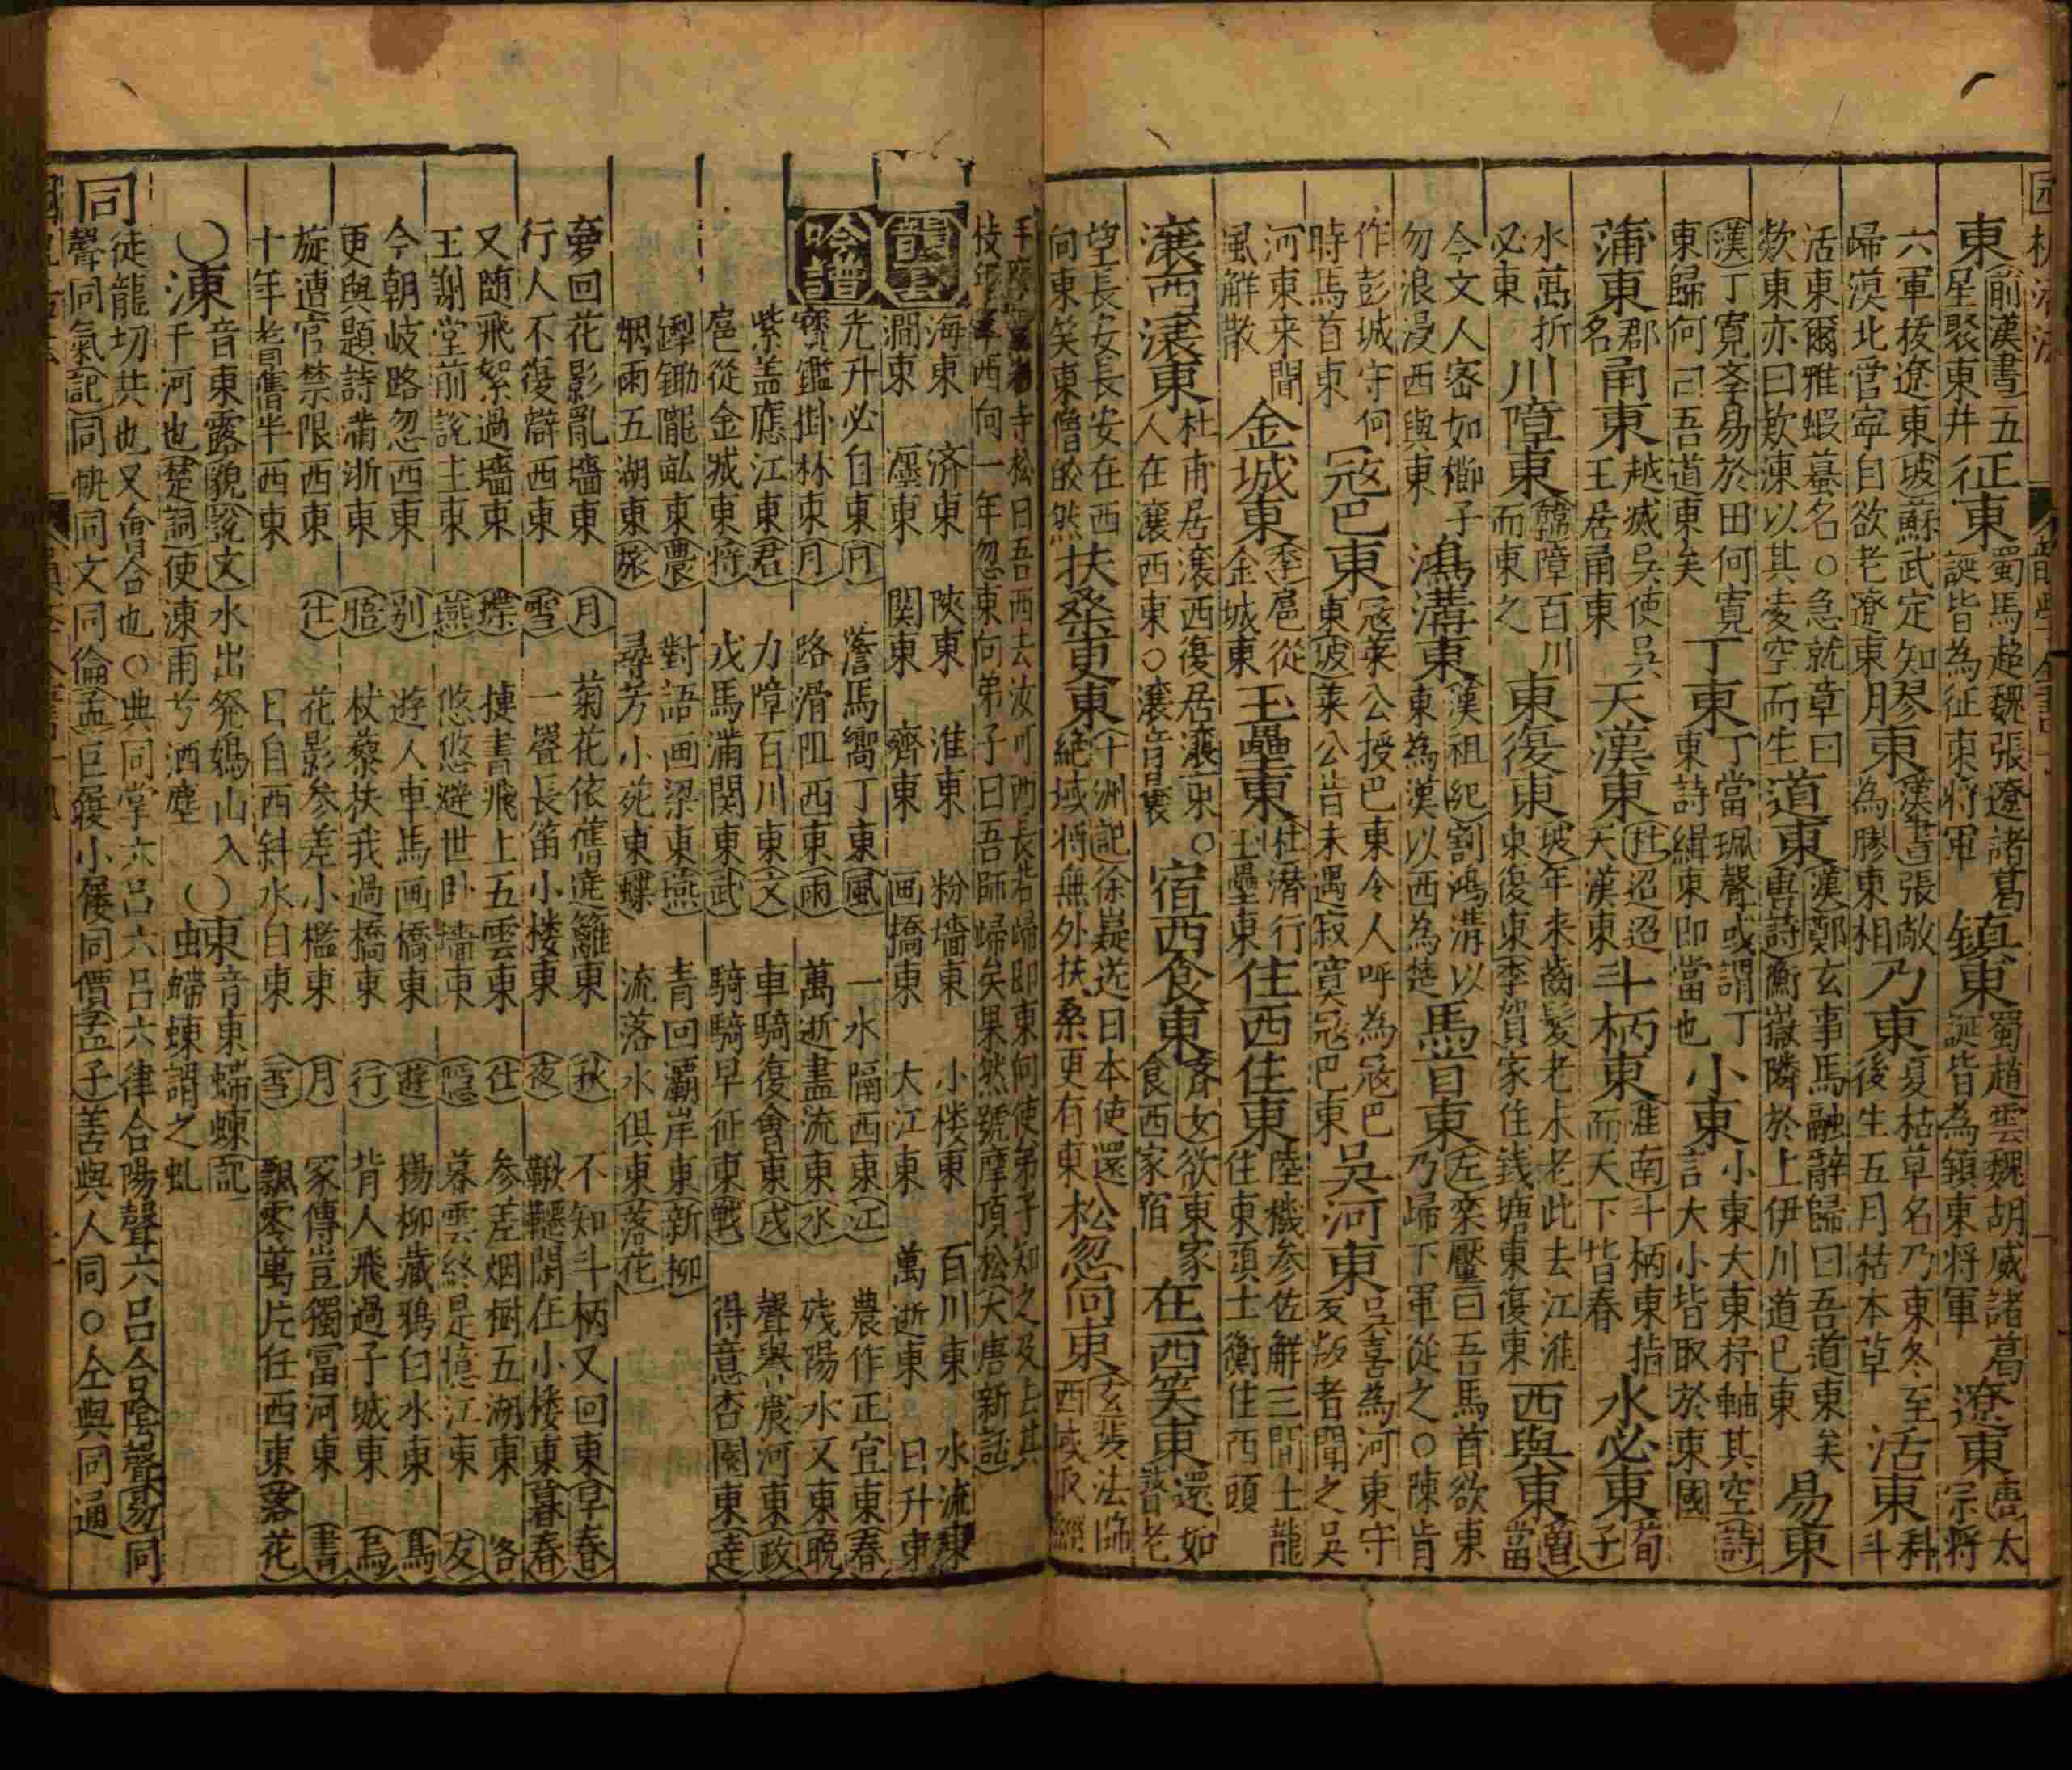 東前漢書五星聚東井征東蜀馬超魏張遼諸葛誕皆為征東將軍鎮東蜀趙雲魏胡威諸葛誕皆為鎮東將軍遼東唐太宗將
六軍拔遼東坡蘇武定知歸漠北管寧自欲老遼東膠東漢書張敞為膠東相乃東夏枯草名乃東冬至後生五月枯本草活東科斗
活東爾雅蝦蟇名○急就章曰款東亦曰款凍以其凌空而生道東漢鄭玄事馬融辭歸曰吾道東矣唐詩衡嶽隣於上伊川道已東易東
漢丁寬孝易於田何寬東歸何曰吾道東矣丁東丁當珮聲或謂丁東詩緝東即當也小東小東大東杼軸其空詩言大小皆取於東國
蒲東郡名甬東越滅吳使吳王居甬東天漢東杜迢迢天漢東斗柄東淮南斗柄東指而天下皆春水必東荀子
水萬折必東川障東韓障百川而東之東復東坡年来齒髮老未老此去江淮東復東李賀家住錢塘東復東西與東曾當
今文人宻如櫛子勿浪漫西與東鴻溝東漢祖紀割鴻溝以東為漢以西為楚馬首東左欒黶曰吾馬首欲東乃歸下軍從之○陳肯
作彭城守何時馬首東寇巴東寇萊公授巴東令人呼為寇巴東坡萊公昔未遇寂寞寇巴東吳河東吳喜為河東守叛者聞之吳
河東来聞風解散金城東李扈從金城東玉壘東杜潛行玉壘東住西住東陸機參佐解三間士龍住東頭士衡住西頭
瀼西瀼東杜甫居瀼西復居瀼東○人在瀼西東○瀼音讓宿西食東齊女欲東家食西家宿在西笑東還如瞽老
望長安長安在西向東笑東僧皎然扶桑更東十洲記徐嶷送日本使還絶域將無外扶桑更有東松忽向東玄奘法師西域取經
手摩靈岩寺松曰吾西去汝可西長若歸即東向使弟子知之及去其枝年年西向一年忽東向弟子曰吾師歸矣果然號摩頂松大唐新話
海東 済東 陜東 淮東 粉墻東 小楼東 百川東 水流東
澗東 㕓東 関東 齊東 画橋東 大江東 萬逝東 日升東
吟譜
光升必自東月 蓎馬嚮丁東風 一水隔西東江 農作正宜東春
寳鑑掛林東月 路滑阻西東雨 萬逝盡流東水 殘陽水又東晩
紫盖應江東君 力障百川東文 車騎復會東戎 聲舉震河東政
扈從金城東将 戎馬滿関東武 騎騎早征東戰 得意杏園東達
鋤隴畝東農 對語画梁東燕 青回灞岸東新柳
烟雨五湖東旅 尋芳小苑東蝶 流落水俱東落花
夢回花影亂墻東月 菊花依舊遶籬東秋 不知斗柄又回東早春
行人不復辟西東雪 一聲長笛小楼東夜 鞦韆閑在小楼東暮春
又随飛絮過墻東蝶 捷書飛上五雲東仕 參差烟樹五湖東客
王謝堂前說主東燕 悠悠避世卧墻東隠 暮雲終是憶江東友
今朝岐路忽西東別 遊人車馬画橋東遊 楊柳藏鴉臼水東馬
更與題詩滿浙東䀩 杖藜扶我過橋東行 背人飛過子城東烏
旋遭官禁限西東仕 花影參差小檻東月 家傳豈獨冨河東書
十年耆舊半西東 日自西斜水自東雪 飄零萬片任西東落花
○涷音東露貌說文水出發鳩山入千河也楚詞使涷雨兮洒塵○蝀音東蝃蝀記虹蝃蝀謂之虹
同徒龍切共也又會合也○典同掌六吕六吕六律合陽聲六吕合陰聲易同聲同氣記同軌同文同倫孟巨屨小屨同價孟子善與人同○仝與同通